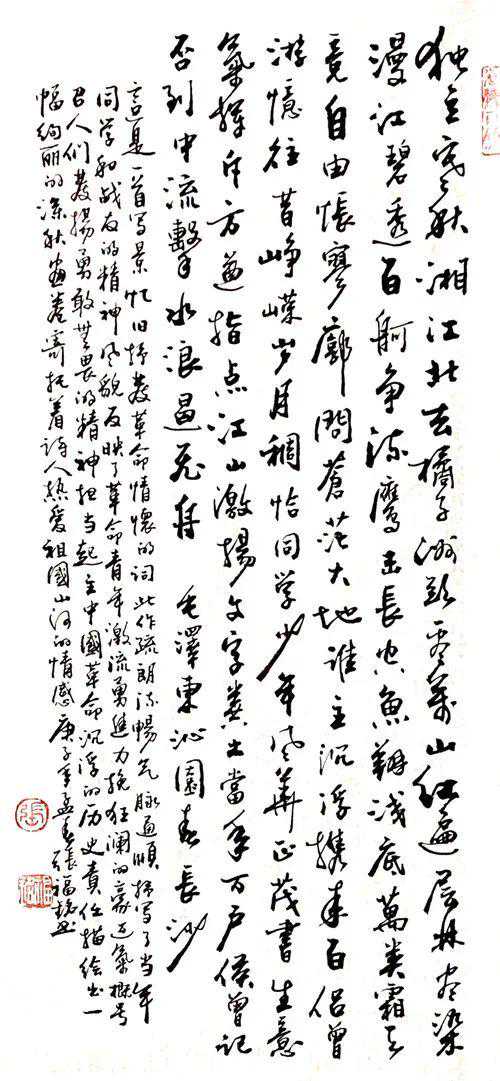 独立寒秋湘江北去橘子洲头看万山红遍层林尽染
漫江碧透百舸争流鹰击长空鱼翔浅底万类霜天
竞自由怅寥廓问苍茫大地谁主沉浮携来百侣曾
游忆往昔峥嵘岁月稠恰同学少年风华正茂书生意
气挥斥方遒指点江山激扬文字粪土当年万户侯曾记
否到中流擊水浪遏飞舟 毛澤東沁園春長沙
這是一首写景忆旧抒发革命情懷的词此作疏朗流暢气脉通順描写了当年
同学和战友的精神风貌反映了革命青年激流勇進力挽狂澜的豪迈氣概号
召人们發揚勇敢無畏的精神担当起主中國革命沉浮的历史責任描绘出一
幅绚丽的深秋畫卷寄托着詩人热爱祖國山河的情感庚子年孟春張福